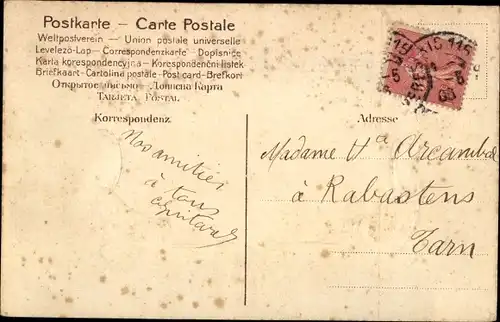 Postkarte – Carte Postale
Weltpostverein – Union postale universelle
Levelező-Lap – Correspondenzkarte – Dopisnice
Karta korespondencyjna – Korespondenční lístek
Briefkaart – Cartolina postale – Post card – Brefkort
Открытое письмо – Дописна Карта
Tarjeta Postal
Korrespondenz
Adresse
Nos amitiés
à tous
Madame
à Rabastens
Tarn